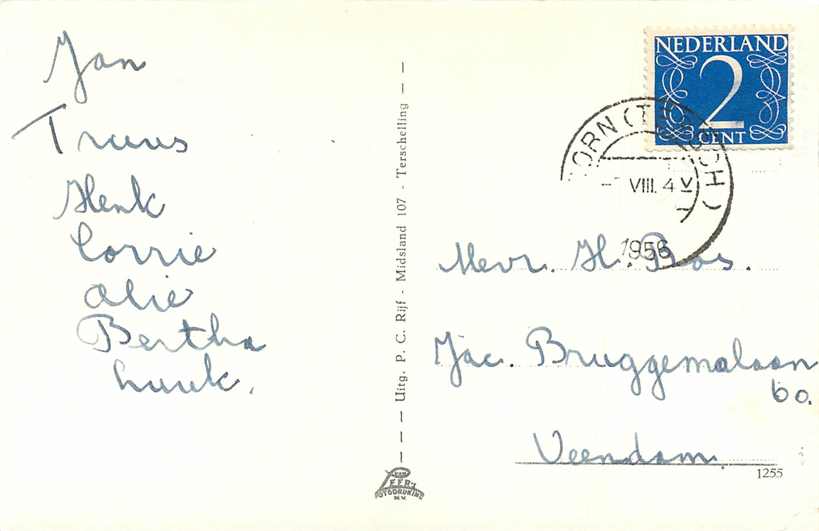 Jan
Truus
Henk
Corrie
Alie
Bertha
Luuk.
Uitg. P. C. Rijf - Midsland 107 - Terschelling
VAN LEER'S
FOTODRUKIND
N.V.
NEDERLAND
2
CENT
HOORN (TERSCH)
VIII. 4
1956
Mevr. H. Bos.
Jac. Bruggemalaan
60.
Veendam.
1255